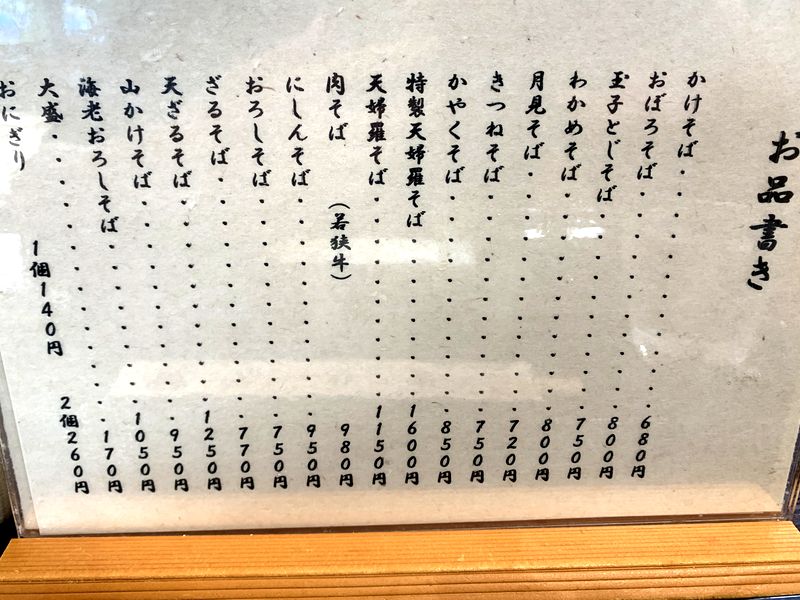 お品書き
かけそば・・・・・・・・・・680円
おぼろそば・・・・・・・・・・800円
玉子とじそば・・・・・・・・・・750円
わかめそば・・・・・・・・・・800円
月見そば・・・・・・・・・・720円
きつねそば・・・・・・・・・・750円
かやくそば・・・・・・・・・・850円
特製天婦羅そば・・・・・・・・1600円
天婦羅そば・・・・・・・・・・1150円
肉そば（若狭牛）980円
にしんそば・・・・・・・・・・950円
おろしそば・・・・・・・・・・750円
ざるそば・・・・・・・・・・770円
天ざるそば・・・・・・・・・・1250円
山かけそば・・・・・・・・・・950円
海老おろしそば・・・・・・・・1050円
大盛・・・・・・・・・・・・170円
おにぎり 1個140円 2個260円